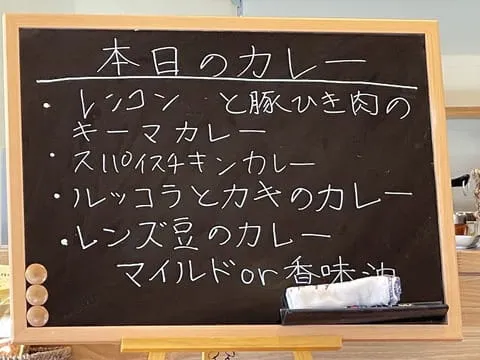 本日のカレー
・レンコン と豚ひき肉の
キーマカレー
・スパイスチキンカレー
・ルッコラとカキのカレー
・レンズ豆のカレー
マイルドor香味油